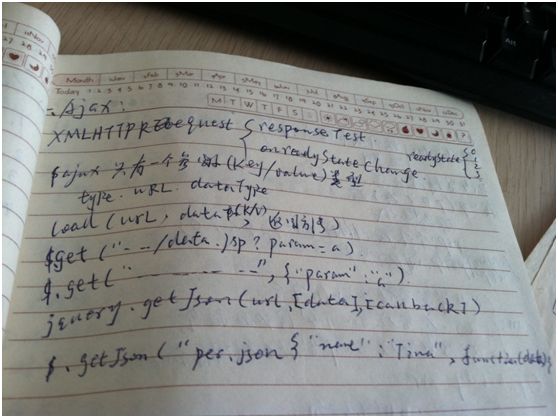 Month 1Jan 2Feb 3Mar 4Apr 5May 6Jun 7Jul 8Aug 9Sep 10Oct 11Nov 12Dec
Today 1 2 3 4 5 6 7 8 9 10 11 12 13 14 15 16 17 18 19 20 21 22 23 24 25 26 27 28 29 30 31
M T W T F S S
一. Ajax:
XMLHTTPRequest { responseTest.
onreadyStateChange. readyState {
$ajax 只有一个参数 (key/value) 类型
type. URL. dataType
load (url, data (k/v),
$get ("--/data.jsp? param=a)
$.get ("------", {"param":"a"}.
jquery.getJson(url,[data],[callback])
$.getJson ("per.json {"name":"Tina", function(data){